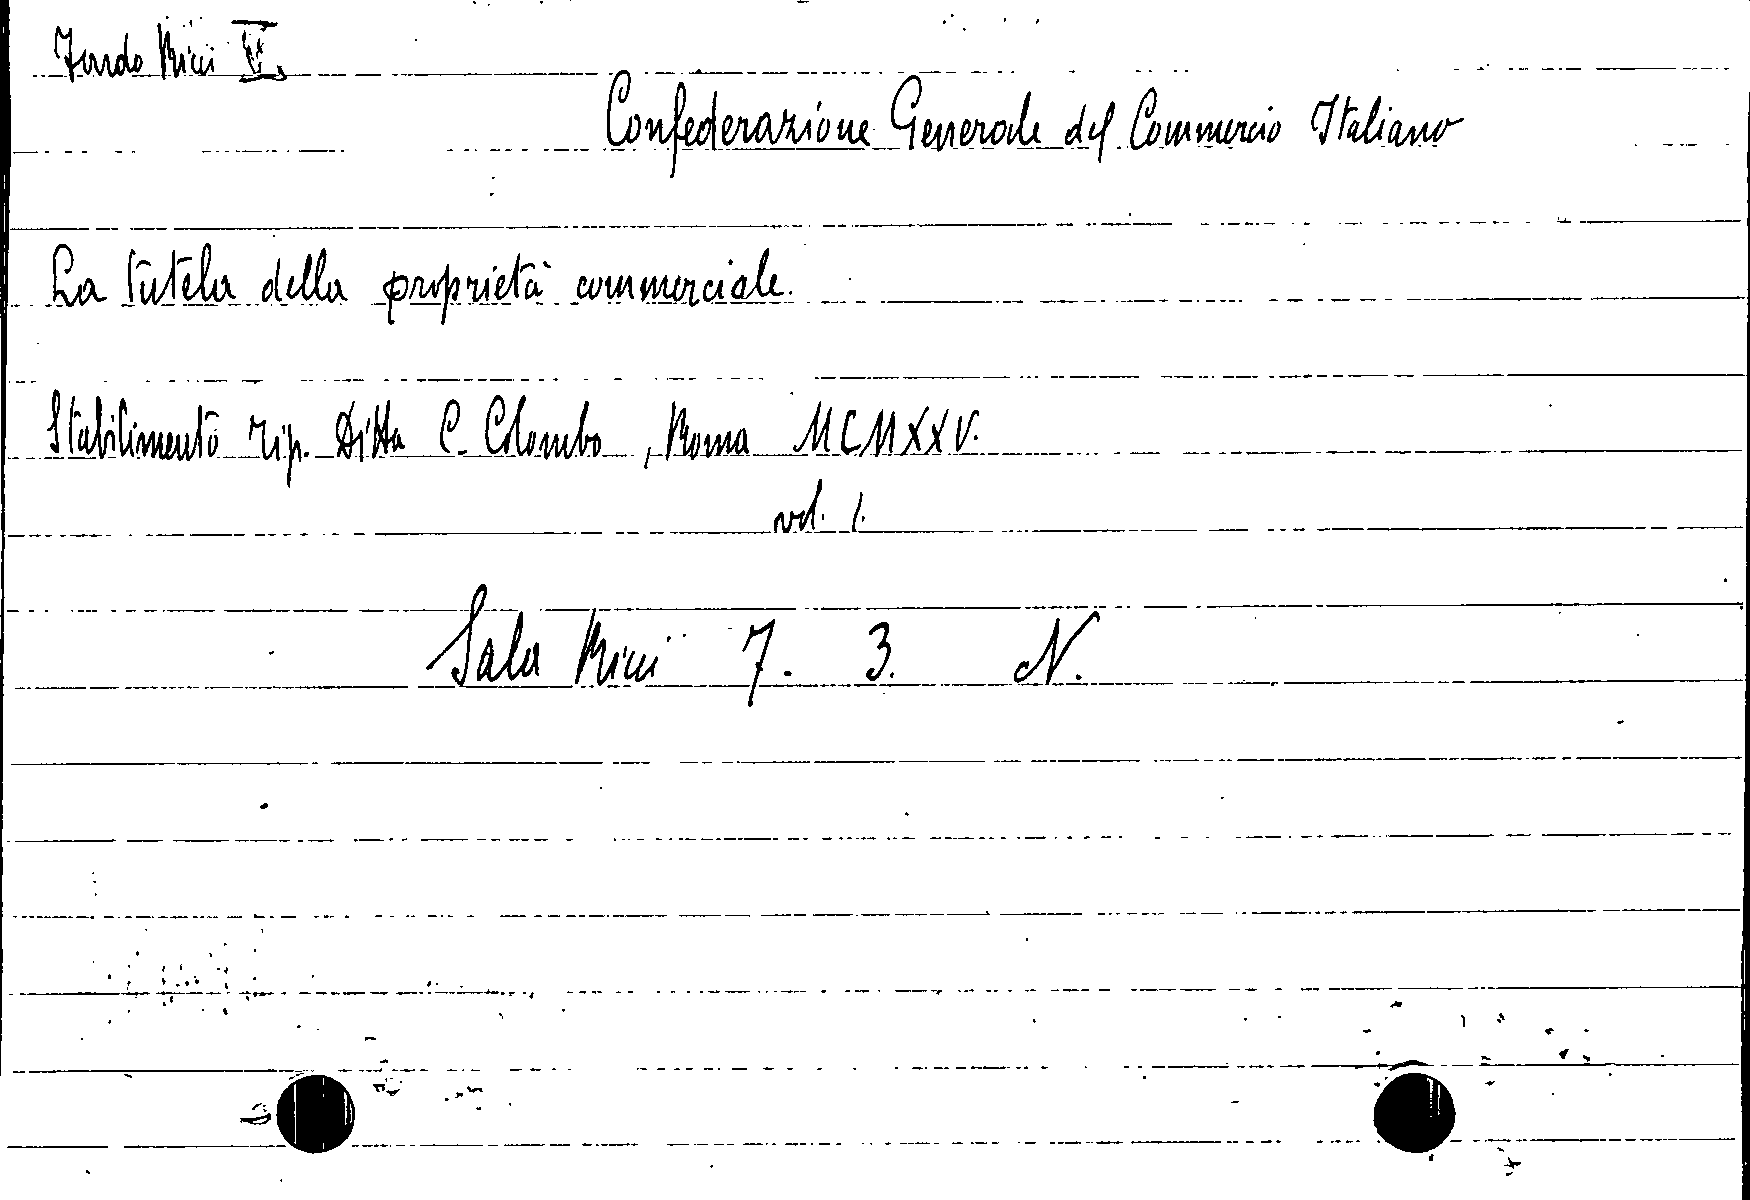 Fondo Ricci
Confederazione Generale del Commercio Italiano
La tutela della proprietà commerciale.
Stabilimento Tip. Ditta C. Colombo, Roma MCMXXV.
vol. 1.
Sala Ricci 7. 3. N.